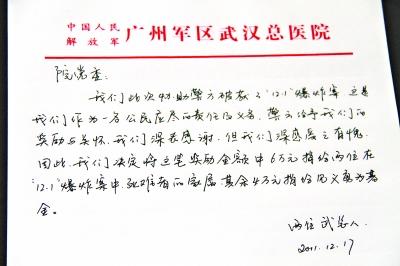 中国人民
解放军
广州军区武汉总医院
院常委:
我们此次协助警方破获了"12.1"爆炸案,这是
我们作为一名公民应尽的责任和义务,警方给予我们的
奖励与关怀,我们深表感谢,但我们深感受之有愧,
因此,我们决定将这笔奖励金额中6万元捐给两位在
"12.1"爆炸案中死难者的家属,其余4万元捐给见义勇为基
金。
两位武总人
2011.12.17